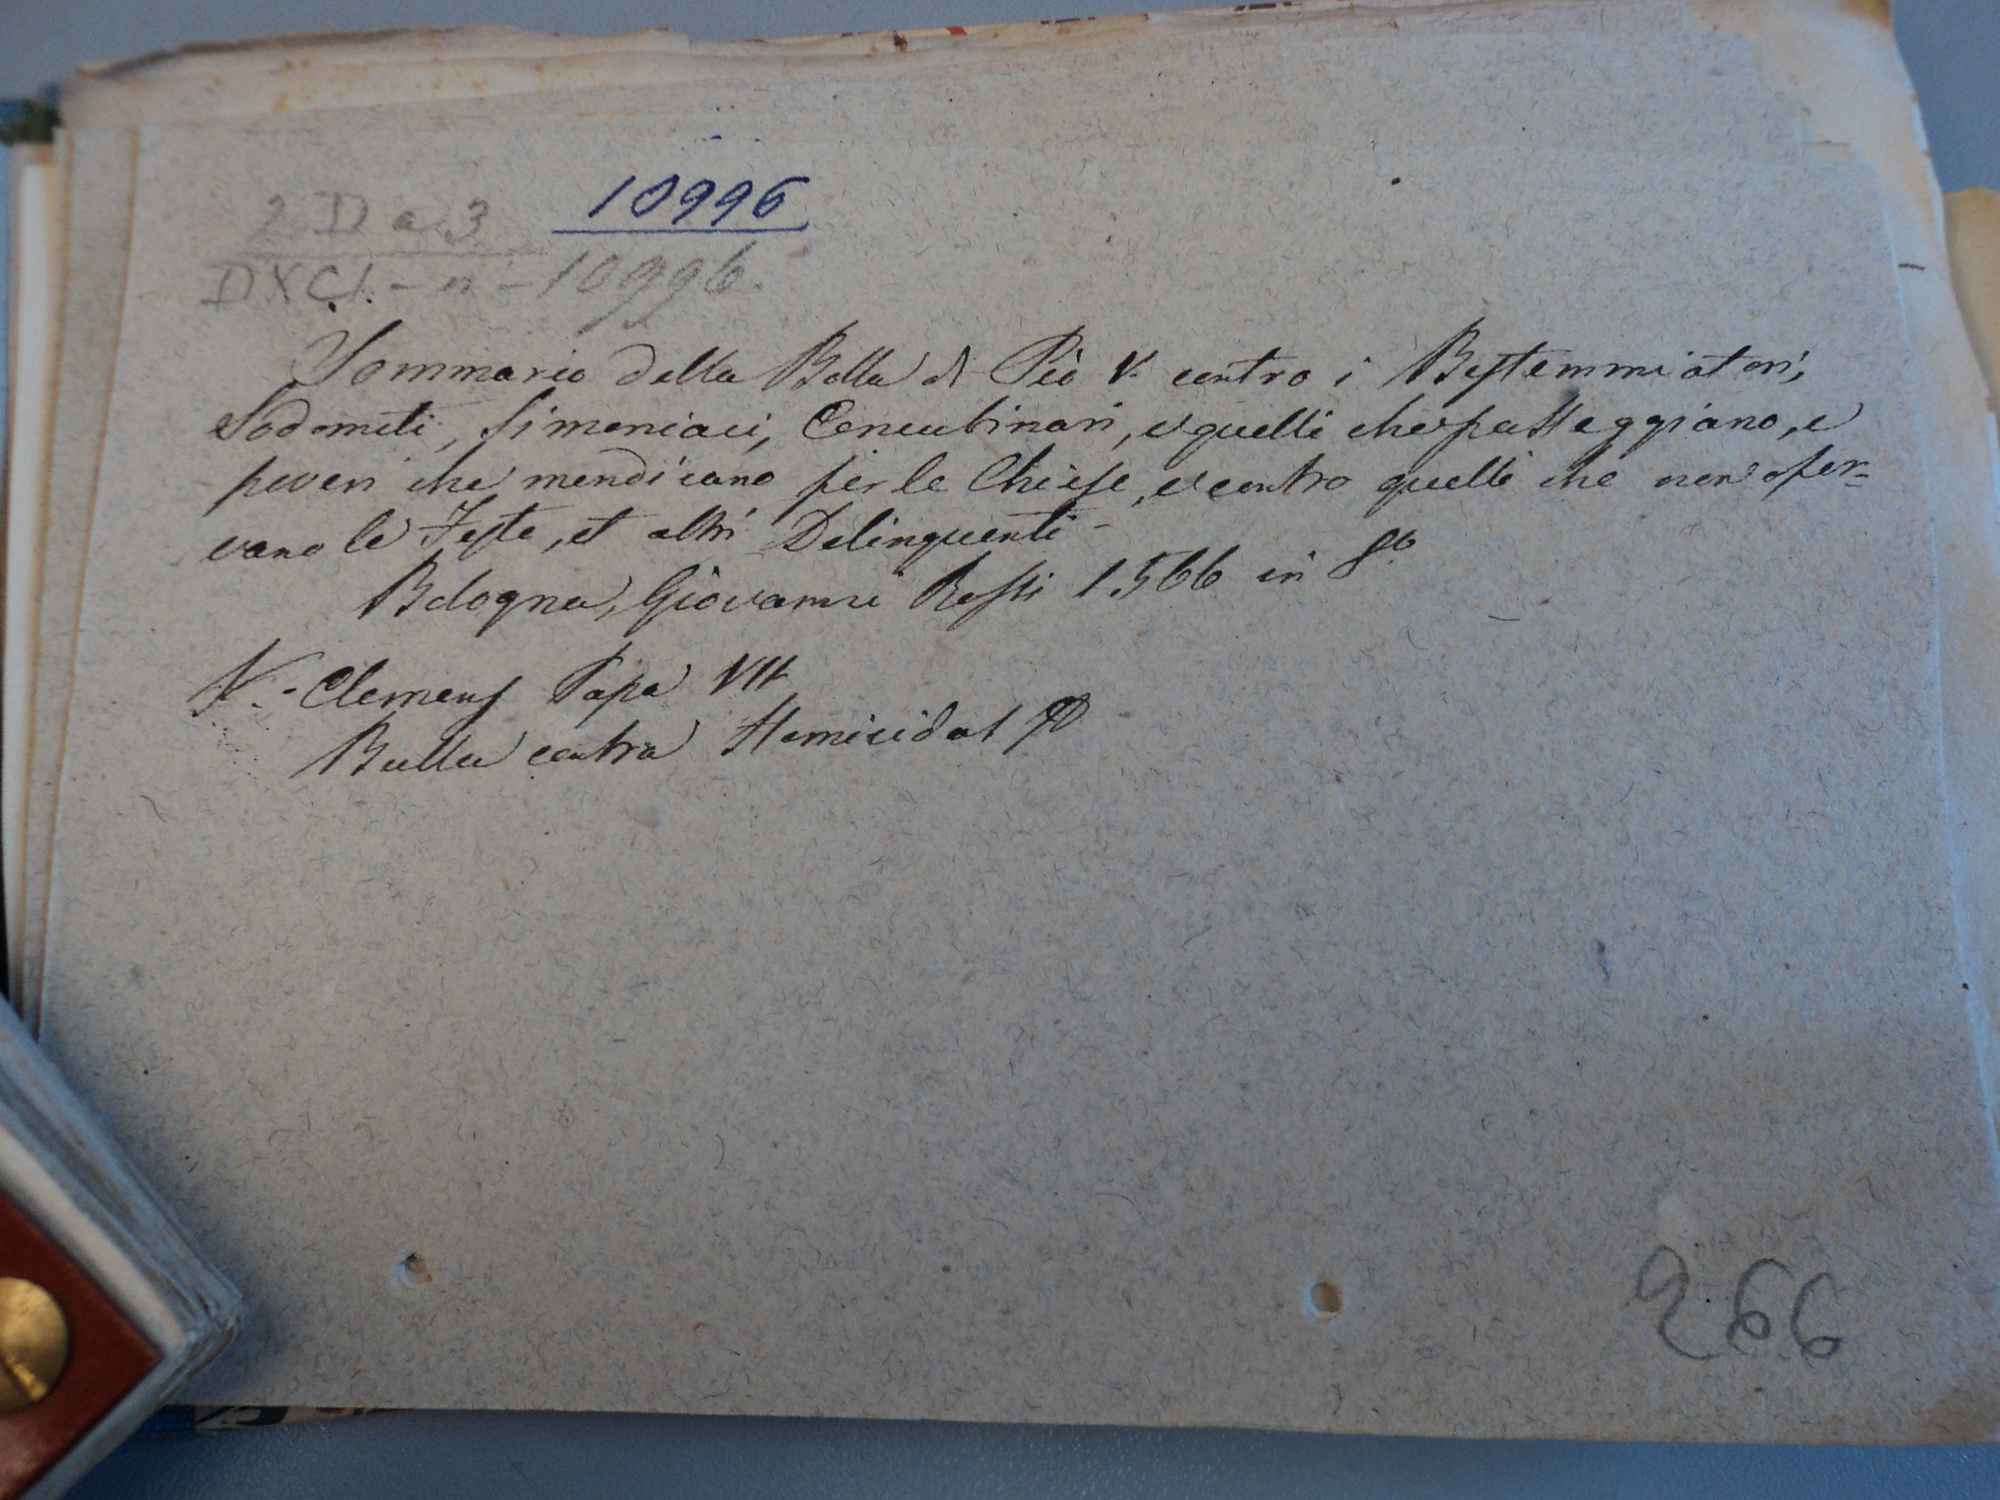 2 D a 3
10996
DXCI - n - 10996.
Sommario della Bolla di Pio V. contro i Bestemmiatori,
Sodomiti, Simoniaci, Concubinari, e quelli che passeggiano, e
poveri che mendicano per le Chiese, e contro quelli che non osser=
vano le Feste, et altri Delinquenti-
Bologna, Giovanni Rossi 1566 in 8.o
V. - Clemens Papa VII
Bulla contra Homicidas
266